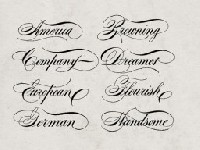 America Browning
Company Dreamer
European Flourish
German Handsome